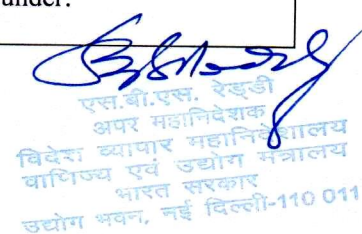 under:
एस.बी.एस. रेड्डी
अपर महानिदेशक
विदेश व्यापार महानिदेशालय
वाणिज्य एवं उद्योग मंत्रालय
भारत सरकार
उद्योग भवन, नई दिल्ली-110 011